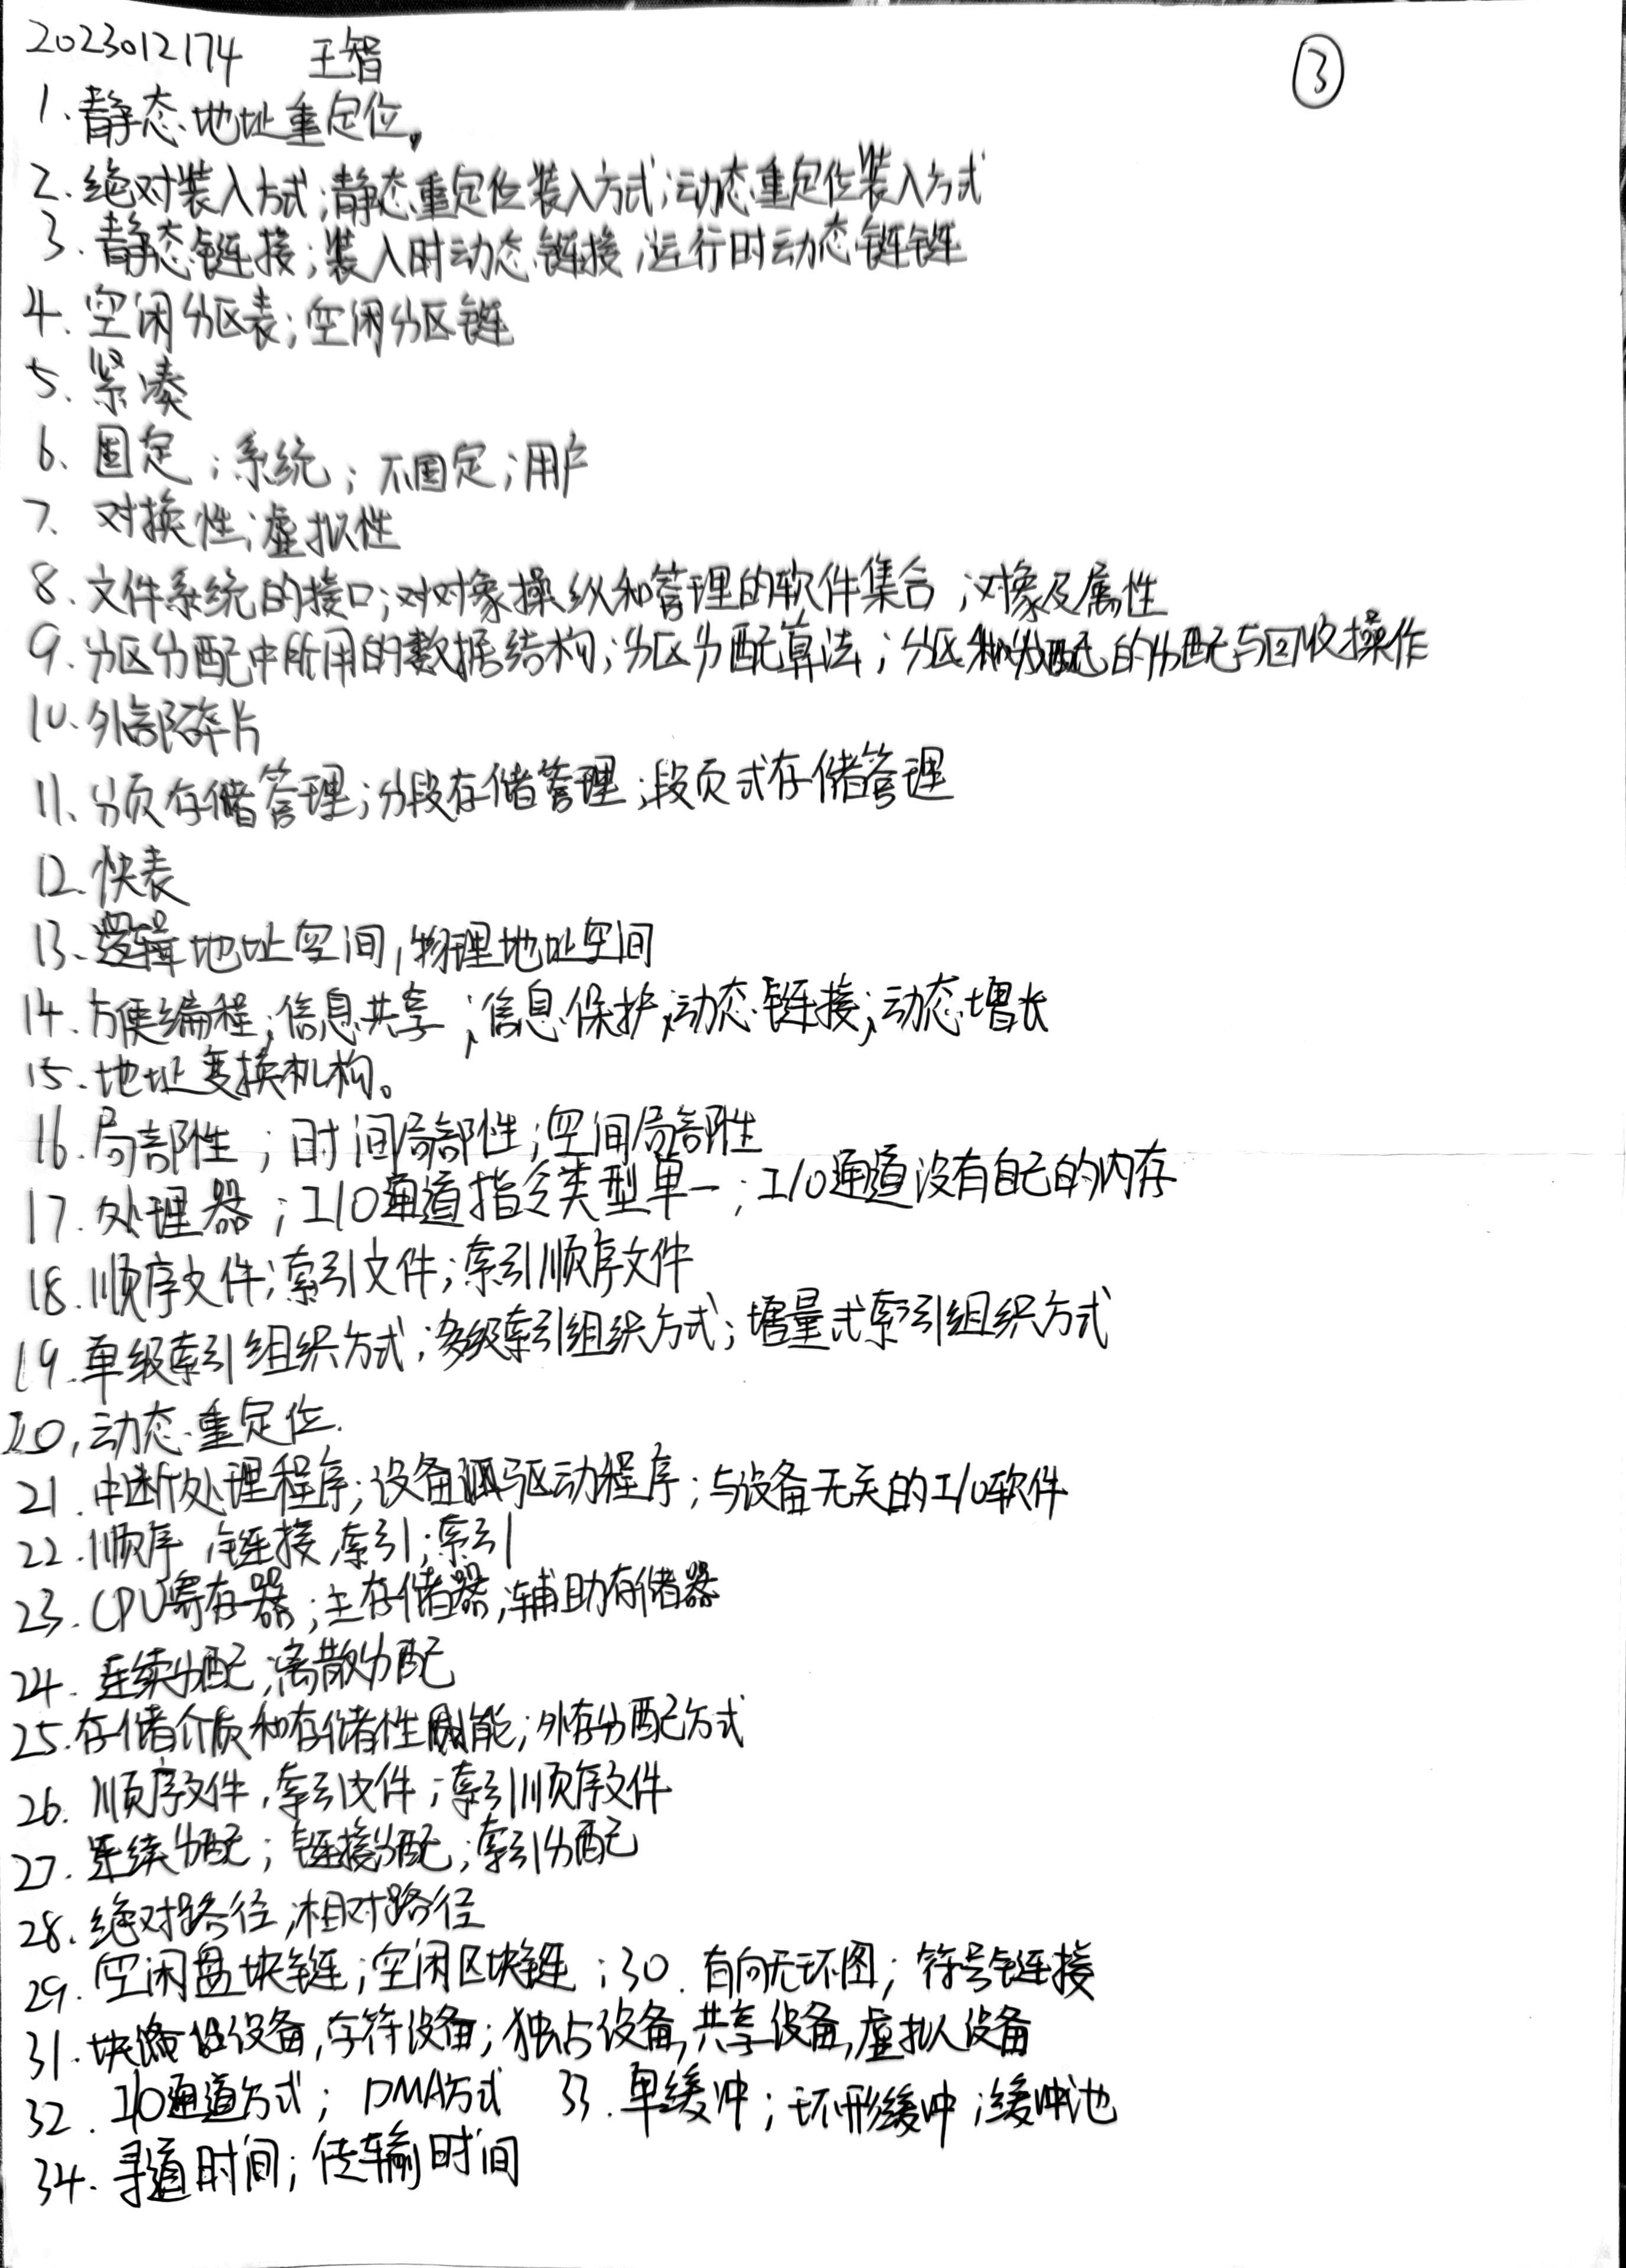 2023012174 王智 ③
1. 静态地址重定位。
2. 绝对装入方式;静态重定位装入方式;动态重定位装入方式
3. 静态链接;装入时动态链接;运行时动态链链
4. 空闲分区表;空闲分区链
5. 紧凑
6. 固定;系统;不固定;用户
7. 对换性;虚拟性
8. 文件系统的接口;对对象操纵和管理的软件集合;对象及属性
9. 分区分配中所用的数据结构;分区分配算法;分区的分配与回收操作
10. 外部碎片
11. 分页存储管理;分段存储管理;段页式存储管理
12. 快表
13. 逻辑地址空间,物理地址空间
14. 方便编程;信息共享;信息保护;动态链接;动态增长
15. 地址变换机构。
16. 局部性;时间局部性;空间局部性
17. 处理器;I/O通道指令类型单一;I/O通道没有自己的内存
18. 顺序文件;索引文件;索引顺序文件
19. 单级索引组织方式;多级索引组织方式;增量式索引组织方式
20. 动态重定位.
21. 中断处理程序;设备驱动程序;与设备无关的I/O软件
22. 顺序,链接,索引;索引
23. CPU寄存器;主存储器;辅助存储器
24. 连续分配;离散分配
25. 存储介质和存储性能;外存分配方式
26. 顺序文件,索引文件;索引顺序文件
27. 连续分配;链接分配;索引分配
28. 绝对路径;相对路径
29. 空闲盘块链;空闲区块链;30. 有向无环图;符号链接
31. 块设备,字符设备;独占设备,共享设备,虚拟设备
32. I/O通道方式;DMA方式 33. 单缓冲;环形缓冲;缓冲池
34. 寻道时间;传输时间